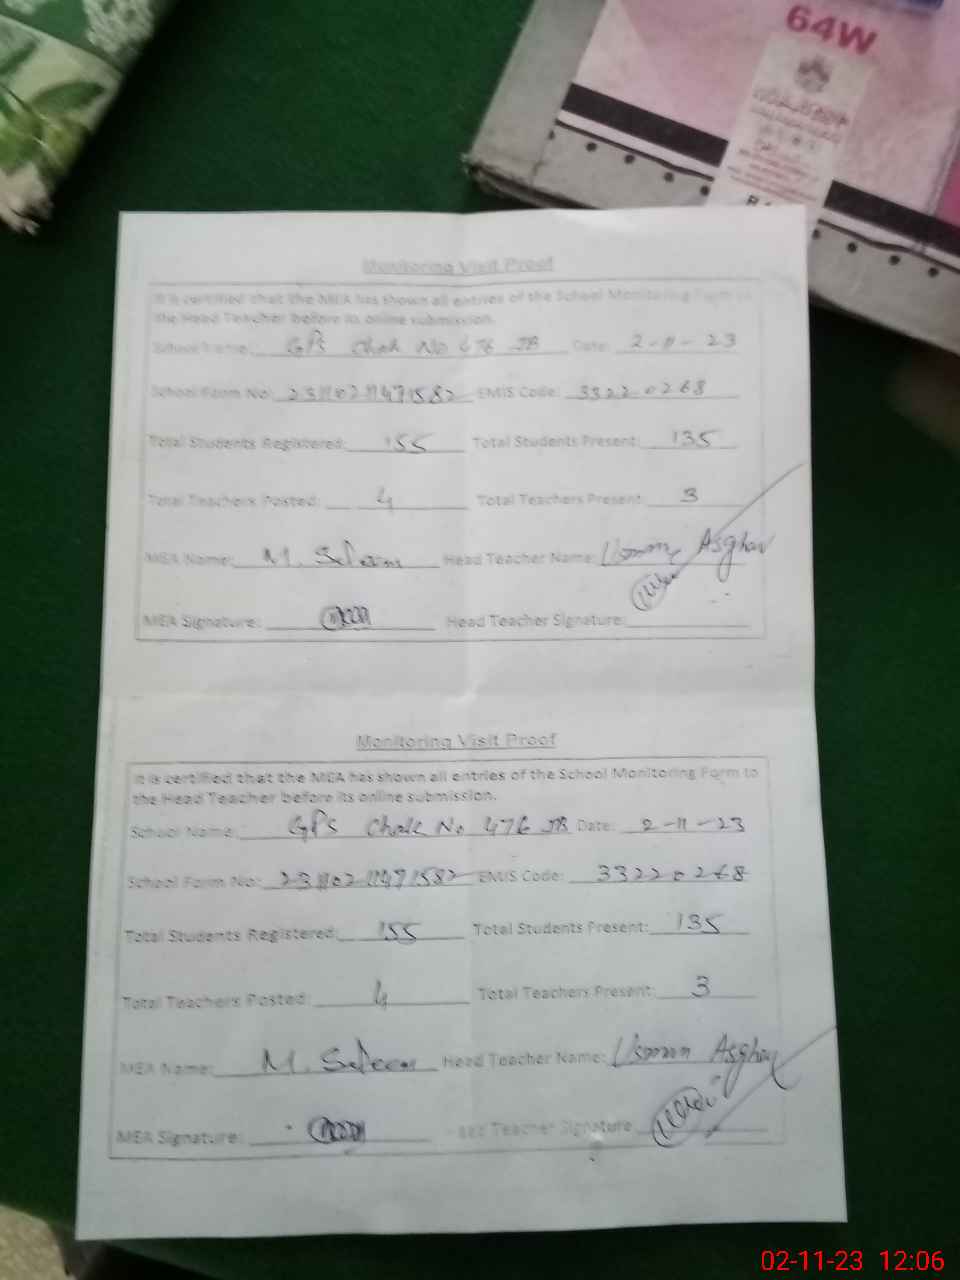 64W
Monitoring Visit Proof
It is certified that the MEA has shown all entries of the School Monitoring Form to
the Head Teacher before its online submission.
School Name: GPS Chak No 476 JB Date: 2-11-23
School Form No: 231102114971582 EMIS Code: 33220268
Total Students Registered: 155 Total Students Present: 135
Total Teachers Posted: 4 Total Teachers Present: 3
MEA Name: M. Saleem Head Teacher Name: Usman Asghar
MEA Signature: Head Teacher Signature:
Monitoring Visit Proof
It is certified that the MEA has shown all entries of the School Monitoring Form to
the Head Teacher before its online submission.
School Name: GPS Chak No 476 JB Date: 2-11-23
School Form No: 231102114971582 EMIS Code: 33220268
Total Students Registered: 155 Total Students Present: 135
Total Teachers Posted: 4 Total Teachers Present: 3
MEA Name: M. Saleem Head Teacher Name: Usman Asghar
MEA Signature: Head Teacher Signature
02-11-23 12:06